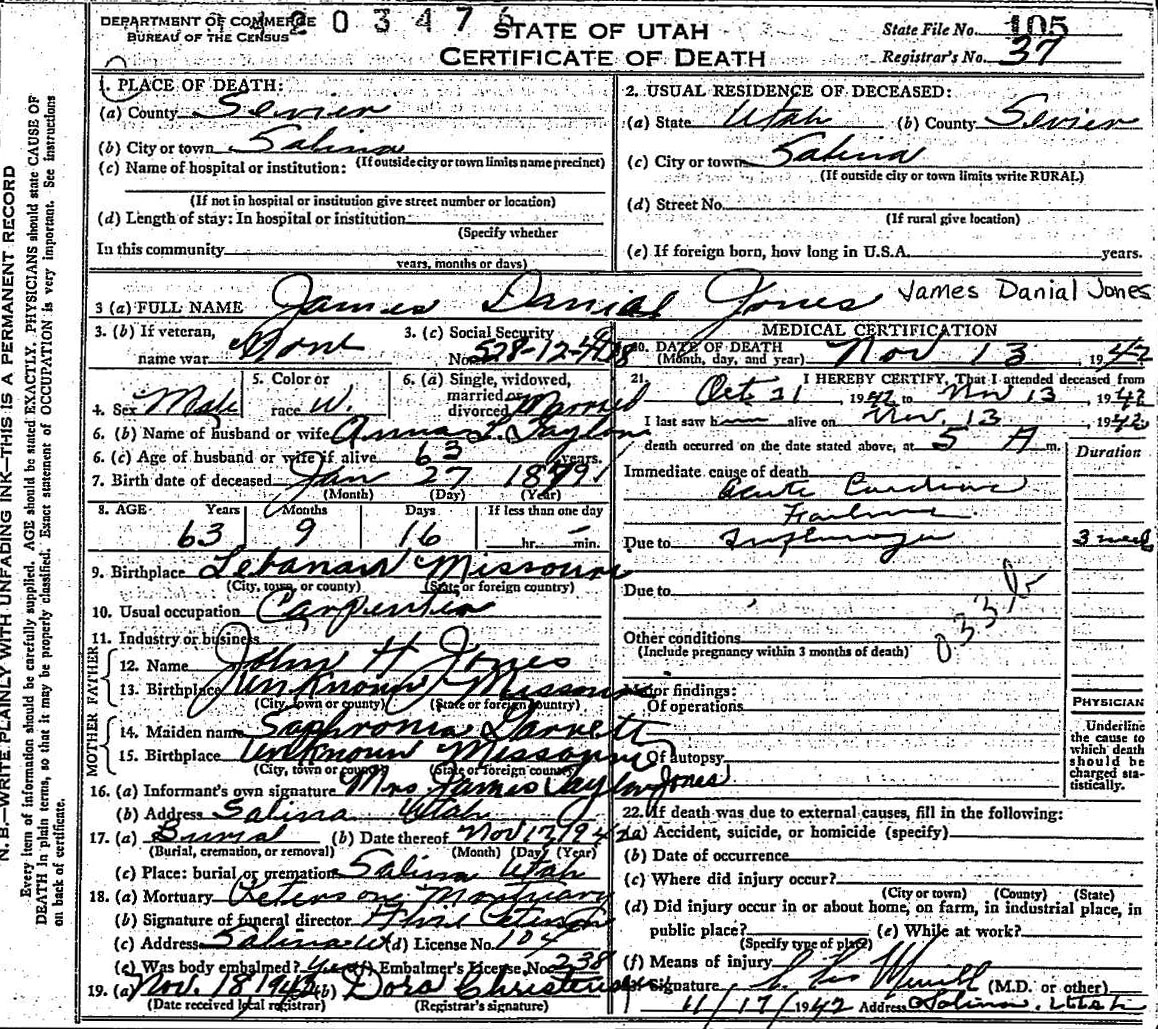 DEPARTMENT OF COMMERCE
BUREAU OF THE CENSUS
STATE OF UTAH
CERTIFICATE OF DEATH
State File No. 105
Registrar's No. 37
N. B.—WRITE PLAINLY WITH UNFADING INK—THIS IS A PERMANENT RECORD
Every item of information should be carefully supplied. AGE should be stated EXACTLY, PHYSICIANS should state CAUSE OF
DEATH in plain terms, so that it may be properly classified. Exact statement of OCCUPATION is very important. See instructions
on back of certificate.
1. PLACE OF DEATH:
(a) County Sevier
(b) City or town Salina
(If outside city or town limits name precinct)
(c) Name of hospital or institution:
(If not in hospital or institution give street number or location)
(d) Length of stay: In hospital or institution
(Specify whether
In this community
years, months or days)
2. USUAL RESIDENCE OF DECEASED:
(a) State Utah (b) County Sevier
(c) City or town Salina
(If outside city or town limits write RURAL)
(d) Street No.
(If rural give location)
(e) If foreign born, how long in U.S.A. years.
3 (a) FULL NAME James Danial Jones James Danial Jones
3. (b) If veteran,
name war None
3. (c) Social Security
No. 528-12-
4. Sex Male
5. Color or
race W.
6. (a) Single, widowed,
married or
divorced Married
6. (b) Name of husband or wife Anna L. Taylor
6. (c) Age of husband or wife if alive 63 years.
7. Birth date of deceased Jan 27 1879
(Month) (Day) (Year)
8. AGE Years Months Days If less than one day
63 9 16 hr. min.
9. Birthplace Lebanan Missouri
(City, town, or county) (State or foreign country)
10. Usual occupation Carpenter
11. Industry or business
FATHER
12. Name John H Jones
13. Birthplace Unknown Missouri
(City, town or county) (State or foreign country)
MOTHER
14. Maiden name Saphronia Garrett
15. Birthplace Unknown Missouri
(City, town or county) (State or foreign country)
16. (a) Informant's own signature Mrs James Taylor Jones
(b) Address Salina Utah
17. (a) Burial (b) Date thereof Nov 17 1942
(Burial, cremation, or removal) (Month) (Day) (Year)
(c) Place: burial or cremation Salina Utah
18. (a) Mortuary Peterson Mortuary
(b) Signature of funeral director
(c) Address Salina Ut (d) License No. 104
(e) Was body embalmed? Yes (f) Embalmer's License No. 238
19. (a) Nov. 18 1942 (b) Dora Christensen
(Date received local registrar) (Registrar's signature)
MEDICAL CERTIFICATION
20. DATE OF DEATH
(Month, day, and year) Nov 13 1942
21. I HEREBY CERTIFY, That I attended deceased from
Oct 31 1942 to Nov 13, 1942
I last saw him alive on Nov. 13 1942
death occurred on the date stated above, at 5 A m.
Duration
Immediate cause of death
Acute Cardiac
Failure
Due to 3 weeks
Due to
033b
Other conditions
(Include pregnancy within 3 months of death)
Major findings:
Of operations
Of autopsy
PHYSICIAN
Underline
the cause to
which death
should be
charged sta-
tistically.
22. If death was due to external causes, fill in the following:
(a) Accident, suicide, or homicide (specify)
(b) Date of occurrence
(c) Where did injury occur?
(City or town) (County) (State)
(d) Did injury occur in or about home, on farm, in industrial place, in
public place? (e) While at work?
(Specify type of place)
(f) Means of injury
Signature (M.D. or other)
11/17/1942 Address Salina, Utah